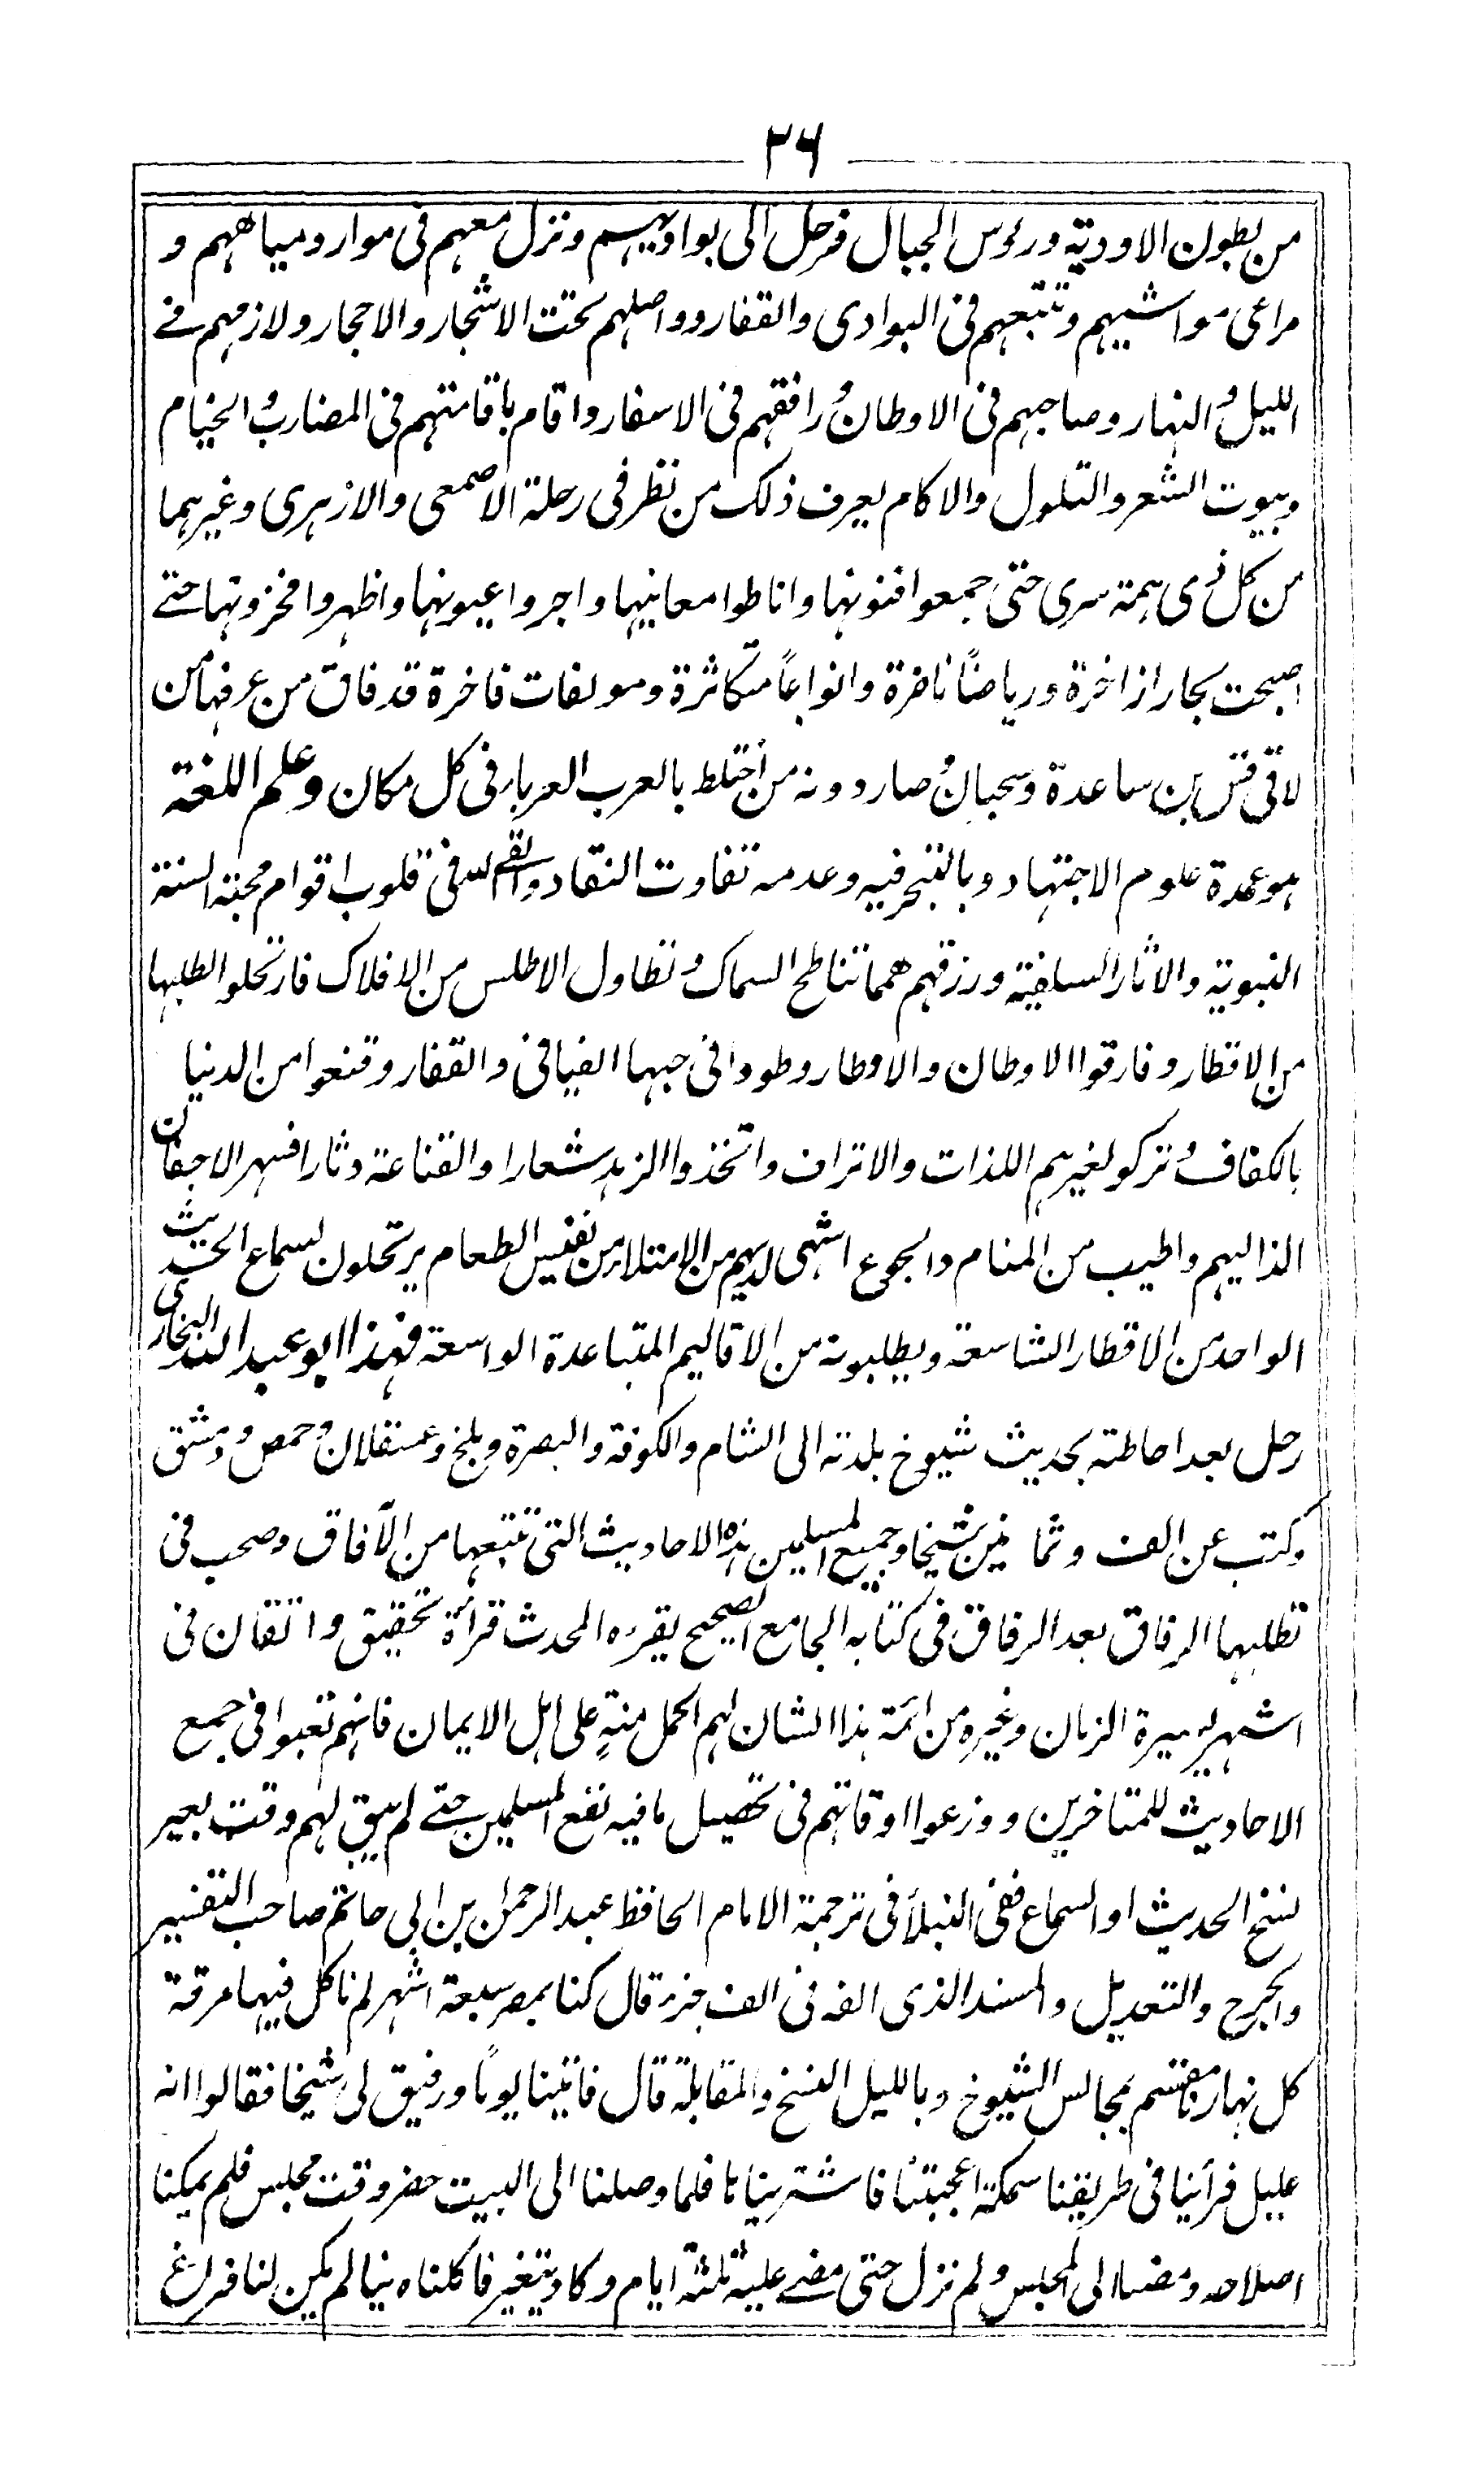 ٢٦
من بطون الاودية ورئوس الجبال فرحل الى بواديهم ونزل معهم فى موارد مياههم و
مراعى مواشيهم وتتبعهم فى البوادى والقفار وواصلهم تحت الاشجار والاحجار ولازمهم فے
الليل والنهار وصاحبهم فى الاوطان ورافقهم فى الاسفار واقام باقامتهم فى المضارب والخيام
وبيوت الشعر والتلول والاكام يعرف ذلك من نظر فى رحلة الاصمعى والازهرى وغيرهما
من كل ذى همة سرى حتى جمعوا فنونها واناطوا معانيها واجروا عيونها واظهروا مخزونها حتے
اصبحت بحارا زاخرة ورياضاً ناضرة وانواعاً متكاثرة ومولفات فاخرة قد فاق من عرفها من
لاقى قس بن ساعدة وسحبان وصار دونه من اختلط بالعرب العرباء فى كل مكان وعلم اللغة
هو عمدة علوم الاجتهاد وبالتبحر فيه وعدمه تفاوت النقاد والقى الله فى قلوب اقوام محبة السنة
النبوية والاثار السلفية ورزقهم همما تناطح السماك وتطاول الاطلس من الافلاك فارتحلوا لطلبها
من الاقطار وفارقوا الاوطان والاوطار وطووا فى حبها الفيافى والقفار وقنعوا من الدنيا
بالكفاف وتركو لغيرهم اللذات والاتراف واتخذوا الزهد شعارا والقناعة دثارا فسهر الاجفان
الذ اليهم واطيب من المنام والجوع اشهى لديهم من الامتلاء من نفيس الطعام يرتحلون لسماع الحديث
الواحد من الاقطار الشاسعة ويطلبونه من الاقاليم المتباعدة الواسعة فهذا ابو عبد الله البخارى
رحل بعد احاطته بحديث شيوخ بلدته الى الشام والكوفة والبصرة وبلخ وعسقلان وحمص ودمشق
وكتب عن الف وثمانين شيخا وجميع المسلمين هذه الاحاديث التى تتبعها من الآفاق وصحب فى
تطلبها الرفاق بعد الرفاق فى كتابه الجامع الصحيح يقرءه المحدث قرأة تحقيق واتقان فى
اشهر يسيرة الزمان وغيره من ائمة هذا الشان لهم اكمل منةٍ على اهل الايمان فانهم تعبوا فى جمع
الاحاديث للمتاخرين ووزعوا اوقاتهم فى تحصيل ما فيه نفع المسلمين حتے لم يبق لهم وقت بعير
نسخ الحديث او السماع ففى النبلأ فى ترجمة الامام الحافظ عبد الرحمن بن ابى حاتم صاحب التفسير
والجرح والتعديل والمسند الذى الفه فى الف جزء قال كنا بمصر سبعة اشهر لم ناكل فيها مرقة
كل نهارنا مقتسم بمجالس الشيوخ وبالليل النسخ والمقابلة قال فاتينا يوماً ورفيق لى شيخا فقالوا انه
عليل فرأينا فى طريقنا سمكة اعجبتنا فاشتريناها فلما وصلنا الى البيت حضر وقت مجلس فلم يمكنا
اصلاحه ومضينا الى المجلس ولم نزل حتى مضے عليه ثلثة ايام وكاد يتغير فاكلناه نيا لم يكن لنا فراغ